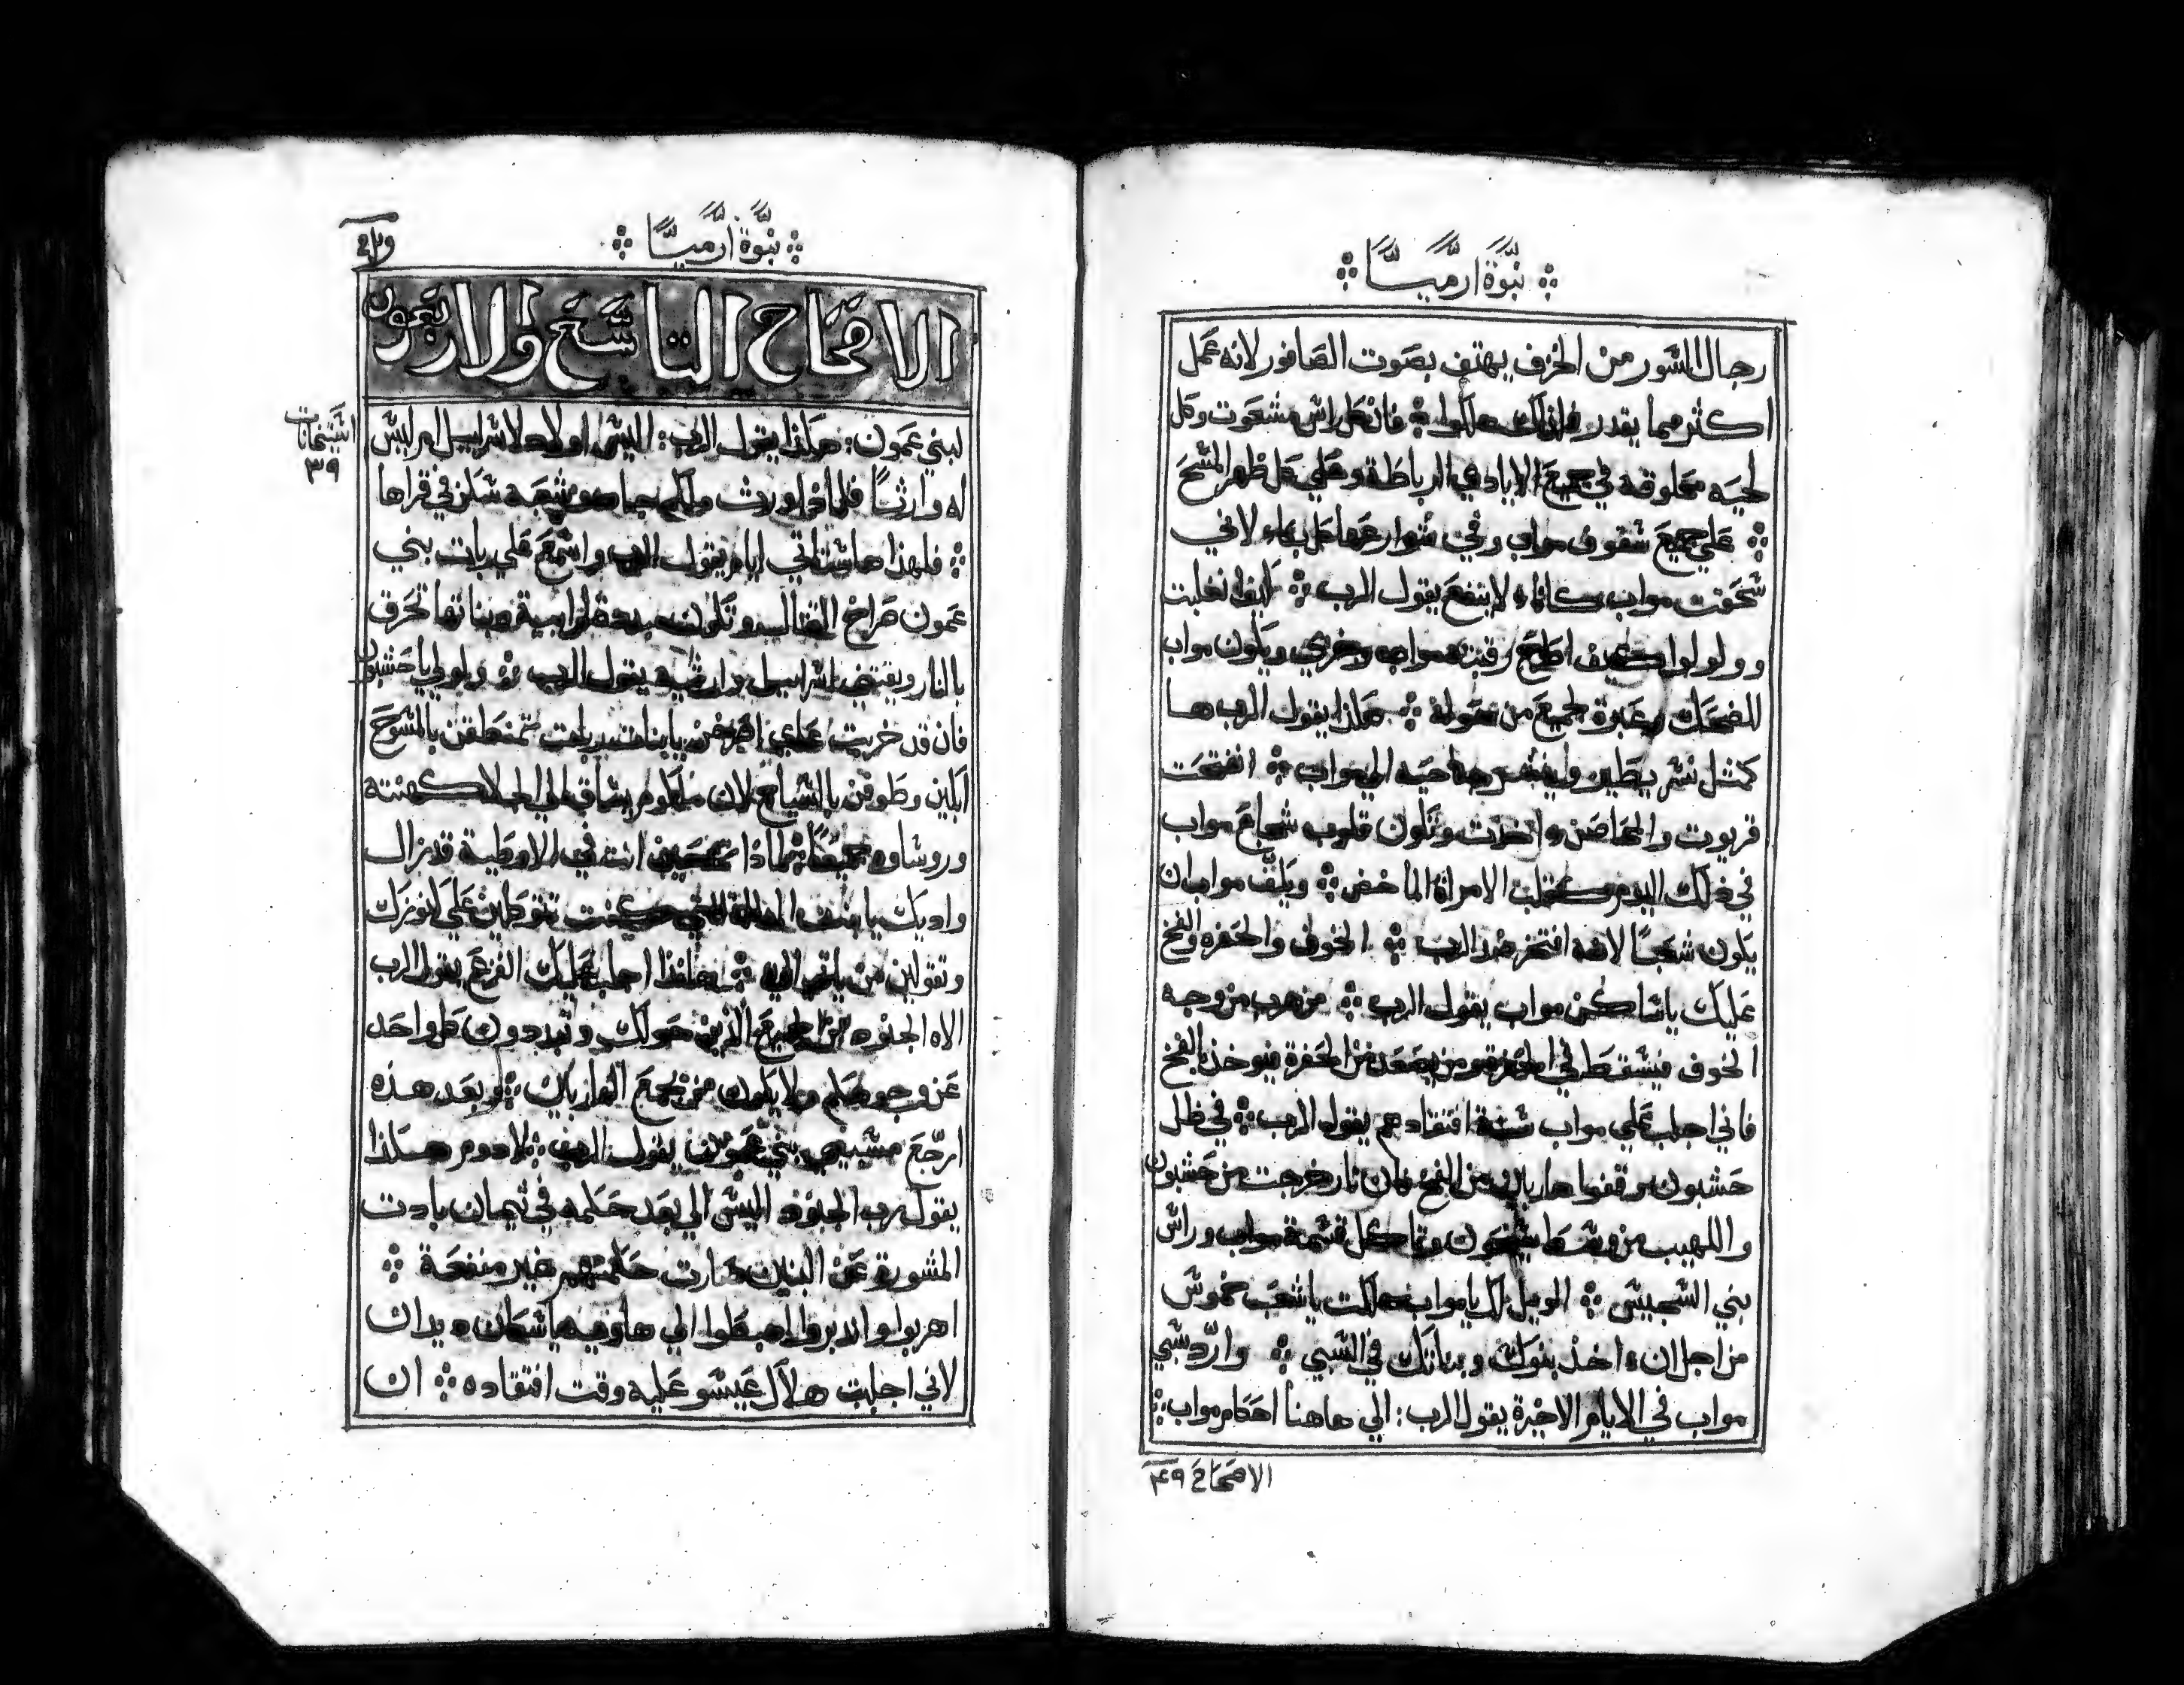 نبوة ارميا
رجال السور من الخزف يهتف بصوت الصافور لانه عمل
اكثر مما يقدر فلذلك هلكوا فان كل راس مشعوت وكل
لحيه محلوقه في جميع الايادي الرباطة وعلي كل ظهر المسح
علي جميع سقوف مواب وفي شوارعها كل بكاء لاني
سحقت مواب كاناء لا ينفع يقول الرب كيف انغلبت
وولولوا كيف اطلع رقبته مواب وخزي ويكون مواب
للضحك وعبرة لجميع من حوله هكذا يقول الرب ها
كمثل نسر يطير ويشف جناحيه الي مواب انفتحت
قريوت والمحاصن اخذت وتكون قلوب شجاع مواب
في ذلك اليوم كقلب الامراة الماخض ويكف مواب ان
يكون شعبا لانه افتخر ضد الرب الخوف والحفره والفخ
عليك يا ساكن مواب يقول الرب من هرب من وجه
الخوف فيسقط في الحفرة ومن يصعد من الحفرة فيوخذ بالفخ
فاني اجلب علي مواب سنة افتقادهم يقول الرب في ظل
حشبون وقفوا هاربين من الفخ فان نار خرجت من حشبون
واللهيب من وسط سيحون وتاكل قسمة مواب وراس
بني السجيس الويل لك يا مواب هلكت يا شعب خموش
من اجل ان اخذ بنوك وبناتك في السبي وارد سبي
مواب في الايام الاخيرة يقول الرب: الي هاهنا احكام مواب
الاصحاح ٤٩
نبوة ارميا
الاصحاح التاسع والاربعون
لبني عمون: هكذا يقول الرب: اليس اولاد لاسراييل ام ليس
له وارثا فلماذا ورث ملكم جاد وشعبه سكن في قراها
فلهذا ها ستاتي ايام يقول الرب واسمع علي ربات بني
عمون صراخ القتال وتكون مبددة لرابية وبناتها تحرق
بالنار ويقتني اسراييل وارثيه يقول الرب ولولي يا حشبون
فان قد خربت عاي اصرخن يا بنات ربات تمنطقن بالمسوح
ابكين وطوفن بالسياج لان ملكوم يساق الي الجلا كهنته
وروساوه جميعا لماذا تفتخرين انت في الاوطية قد زال
واديك يا بنت المدللة التي كنت تتوكلين علي كنوزك
وتقولين من ياتي الي هانذا اجلب عليك الفزع يقول الرب
الاه الجنود من جميع الذين حولك وتبددون كل واحد
عن وجوهكم ولا يكون من يجمع الهاربين وبعد هذه
ارجع مسبيين بني عمون يقول الرب لادوم هكذا
يقول رب الجنود اليس الي بعد حكمه في تيمان بادت
المشورة عن البنين صارت حكمتهم غير منفعة
اهربوا واندبروا اهبطوا الي هاوية يا سكان ديدان
لاني اجلبت هلاك عيسو عليه وقت افتقاده ان